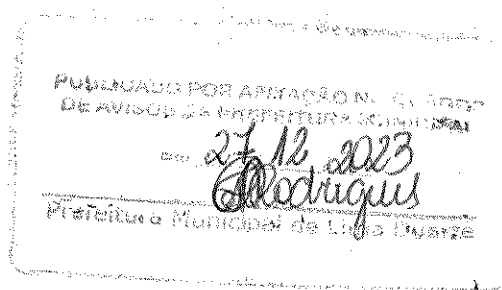 PUBLICADO POR AFIXAÇÃO N
DE AVISOS DA PREFEITURA MUNICIPAL
em 27 12 2023
Rodrigues
Prefeitura Municipal de Lima Duarte